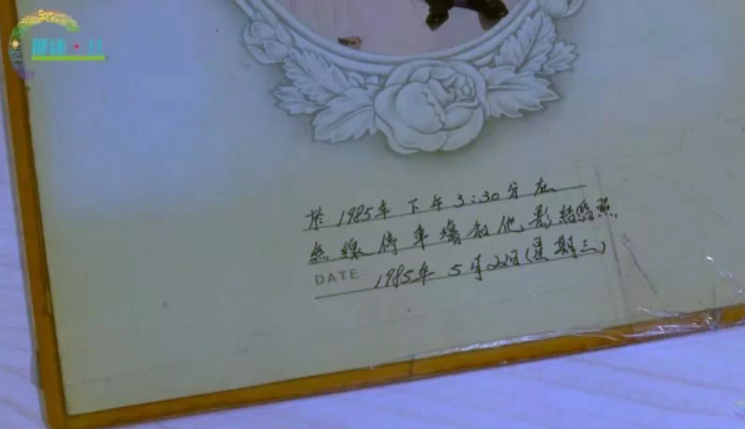 健康·旦
於1985年下午3:30分在
無線停車場和他影結婚照.
DATE: 1985年5月22日(星期三)